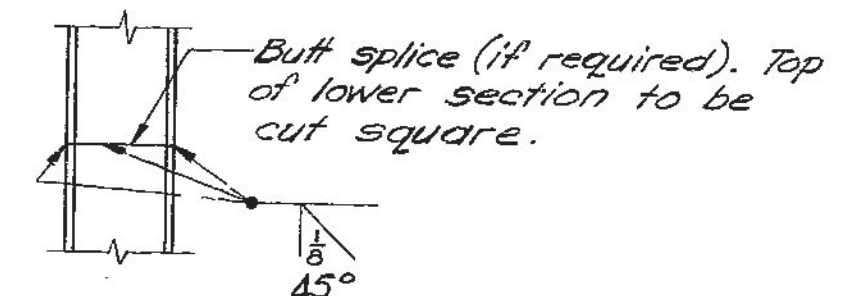 Butt splice (if required). Top
of lower section to be
cut square.
1/8
45°